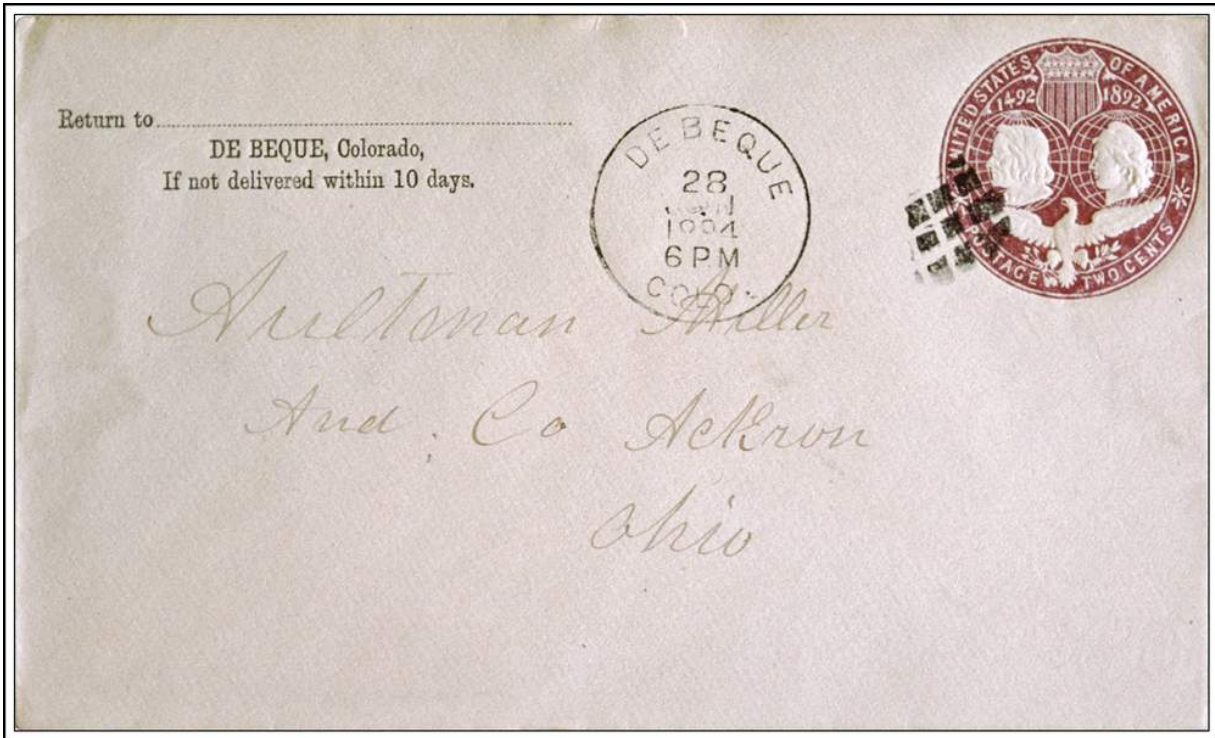 Return to
DE BEQUE, Colorado,
If not delivered within 10 days.
DE BEQUE
28
1894
6 PM
COLO.
UNITED STATES OF AMERICA
1492 1892
POSTAGE TWO CENTS
Aultman Miller
And. Co Ackron
Ohio